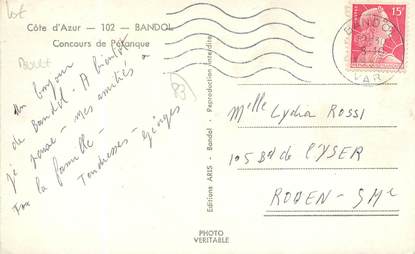 Côte d'Azur — 102 — BANDOL
Concours de Pétanque
Un bonjour
de Bandol. A bientôt
je pense - mes amitiés à
la famille -
Tendresses -
Editions ARIS - Bandol - Reproduction interdite
PHOTO
VERITABLE
15F
BANDOL
VAR
Melle Lydia ROSSI
105 Bd de l'YSER
ROUEN - S Me